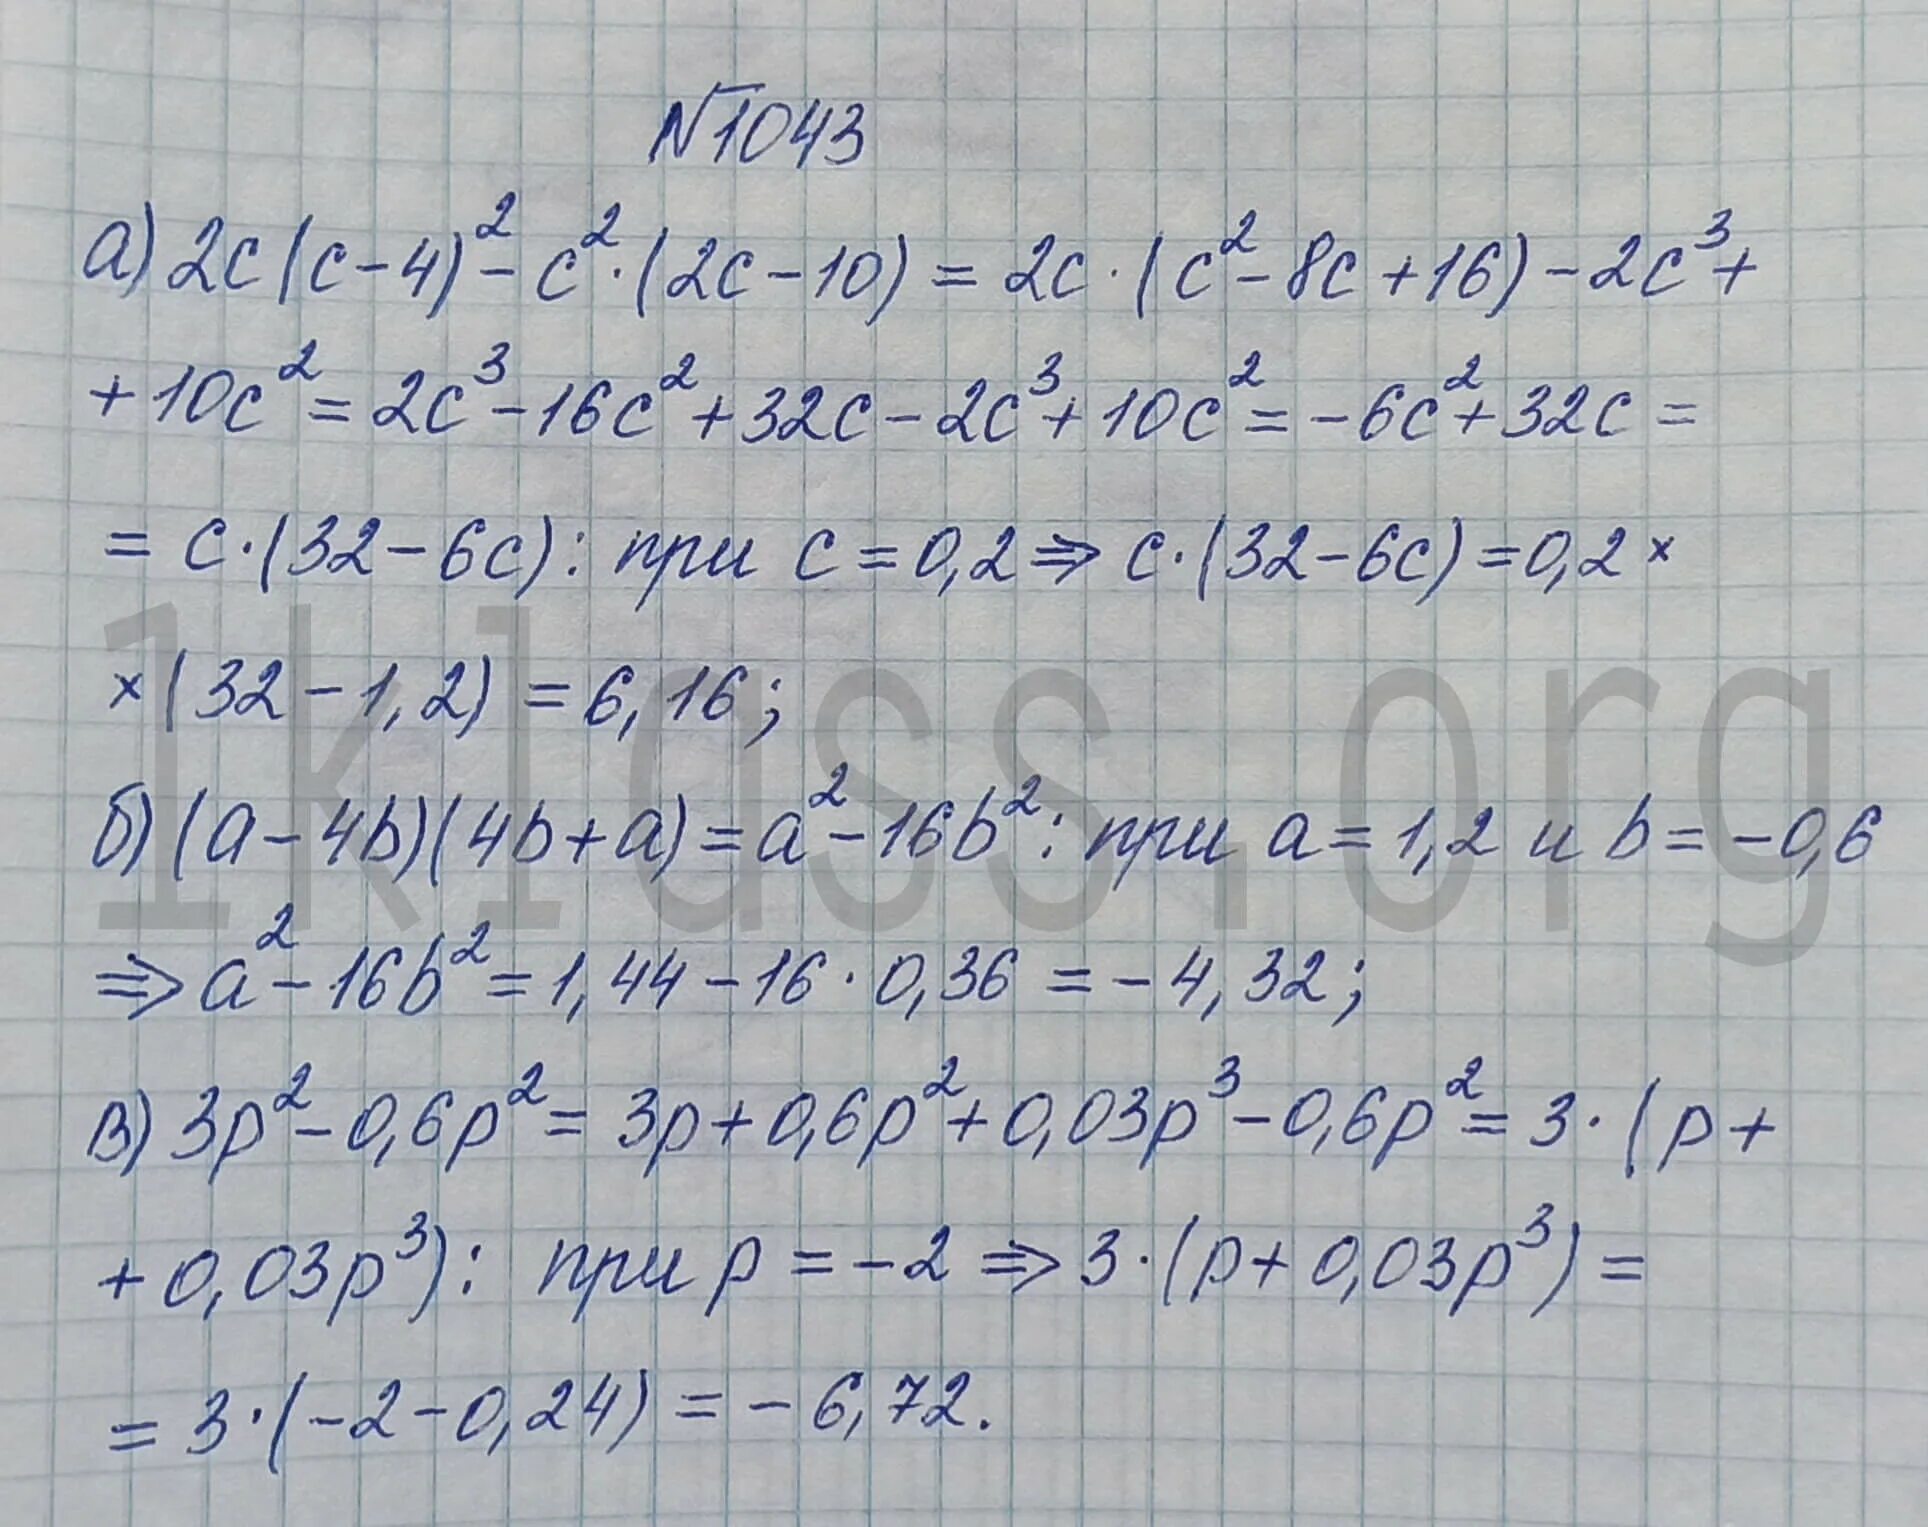 №1043
а) 2c(c-4)² - c²·(2c-10) = 2c·(c²-8c+16) - 2c³+
+10c² = 2c³-16c²+32c-2c³+10c² = -6c²+32c =
= c·(32-6c): при c=0,2 ⇒ c·(32-6c)=0,2 ×
×(32-1,2) = 6,16;
б) (a-4b)(4b+a) = a²-16b²: при a=1,2 и b=-0,6
⇒ a²-16b² = 1,44-16·0,36 = -4,32;
в) 3p²-0,6p² = 3p+0,6p²+0,03p³-0,6p² = 3·(p+
+0,03p³): при p=-2 ⇒ 3·(p+0,03p³)=
= 3·(-2-0,24) = -6,72.
1klass.org